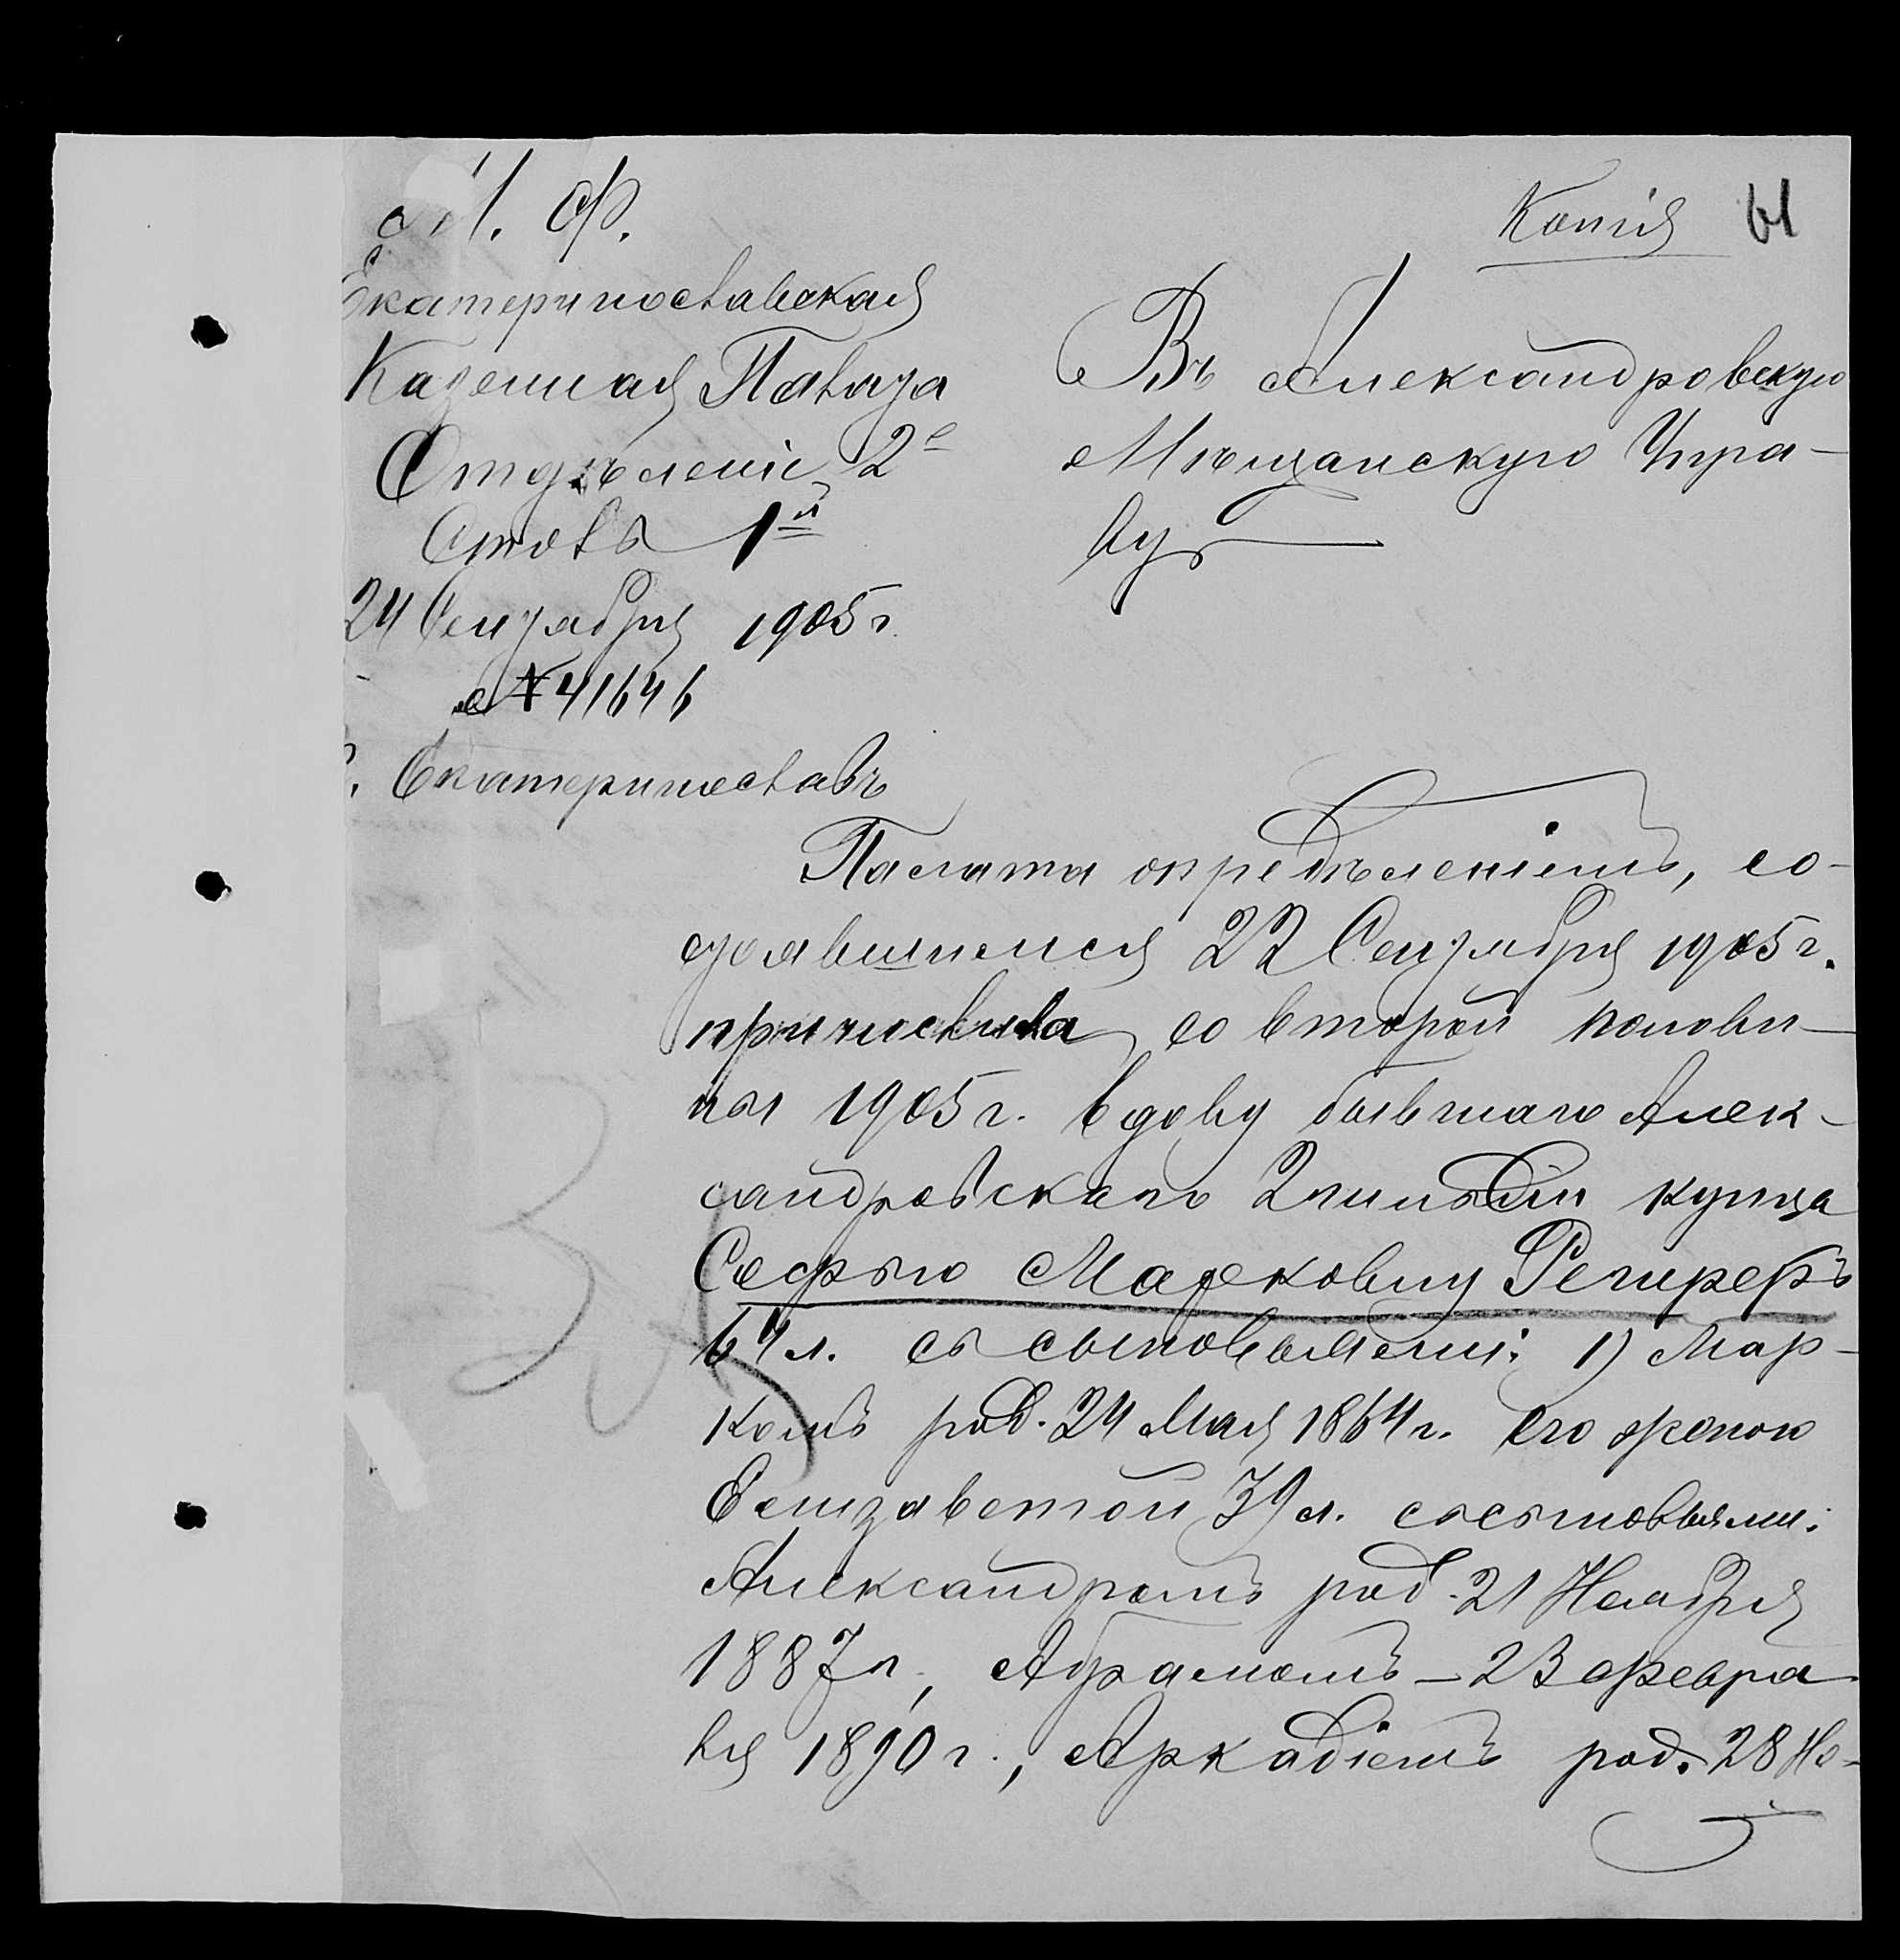 М. Ф.
Копія 61
Екатеринославская
Казенная Палата
Отдѣленіе 2е
Столъ 1й
24 Сентября 1905 г.
№ 41646
г. Екатеринославъ
Въ Александровскую
Мѣщанскую Упра-
ву
Палата опредѣленіемъ, со-
стоявшимся 22 Сентября 1905 г.
причислила со второй полови-
ны 1905 г. вдову бывшаго Алек-
сандровскаго 2 гильдіи купца
Софью Марковну Регирер
64 л. съ сыновьями: 1) Мар-
комъ род. 24 Мая 1864 г. его женою
Елизаветой 39 л. съ сыновьями:
Александромъ род. 21 Ноября
1887 г., Абрамомъ – 23 февра-
ля 1890 г., Аркадіемъ род. 28 Но-